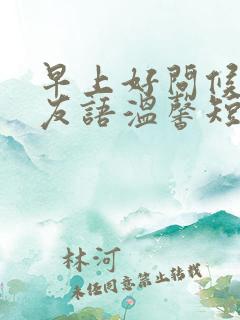 早上好問候
友語溫馨短
林河
未经同意禁止转载